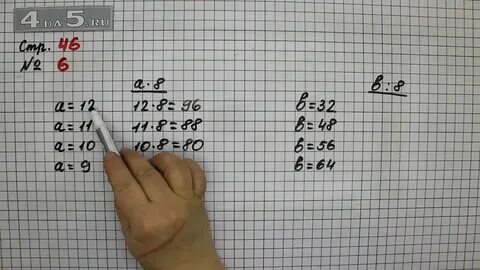 4 ДА 5.RU
Стр. 46
№ 6
a · 8
a = 12 12 · 8 = 96
a = 11 11 · 8 = 88
a = 10 10 · 8 = 80
a = 9
в : 8
в = 32
в = 48
в = 56
в = 64